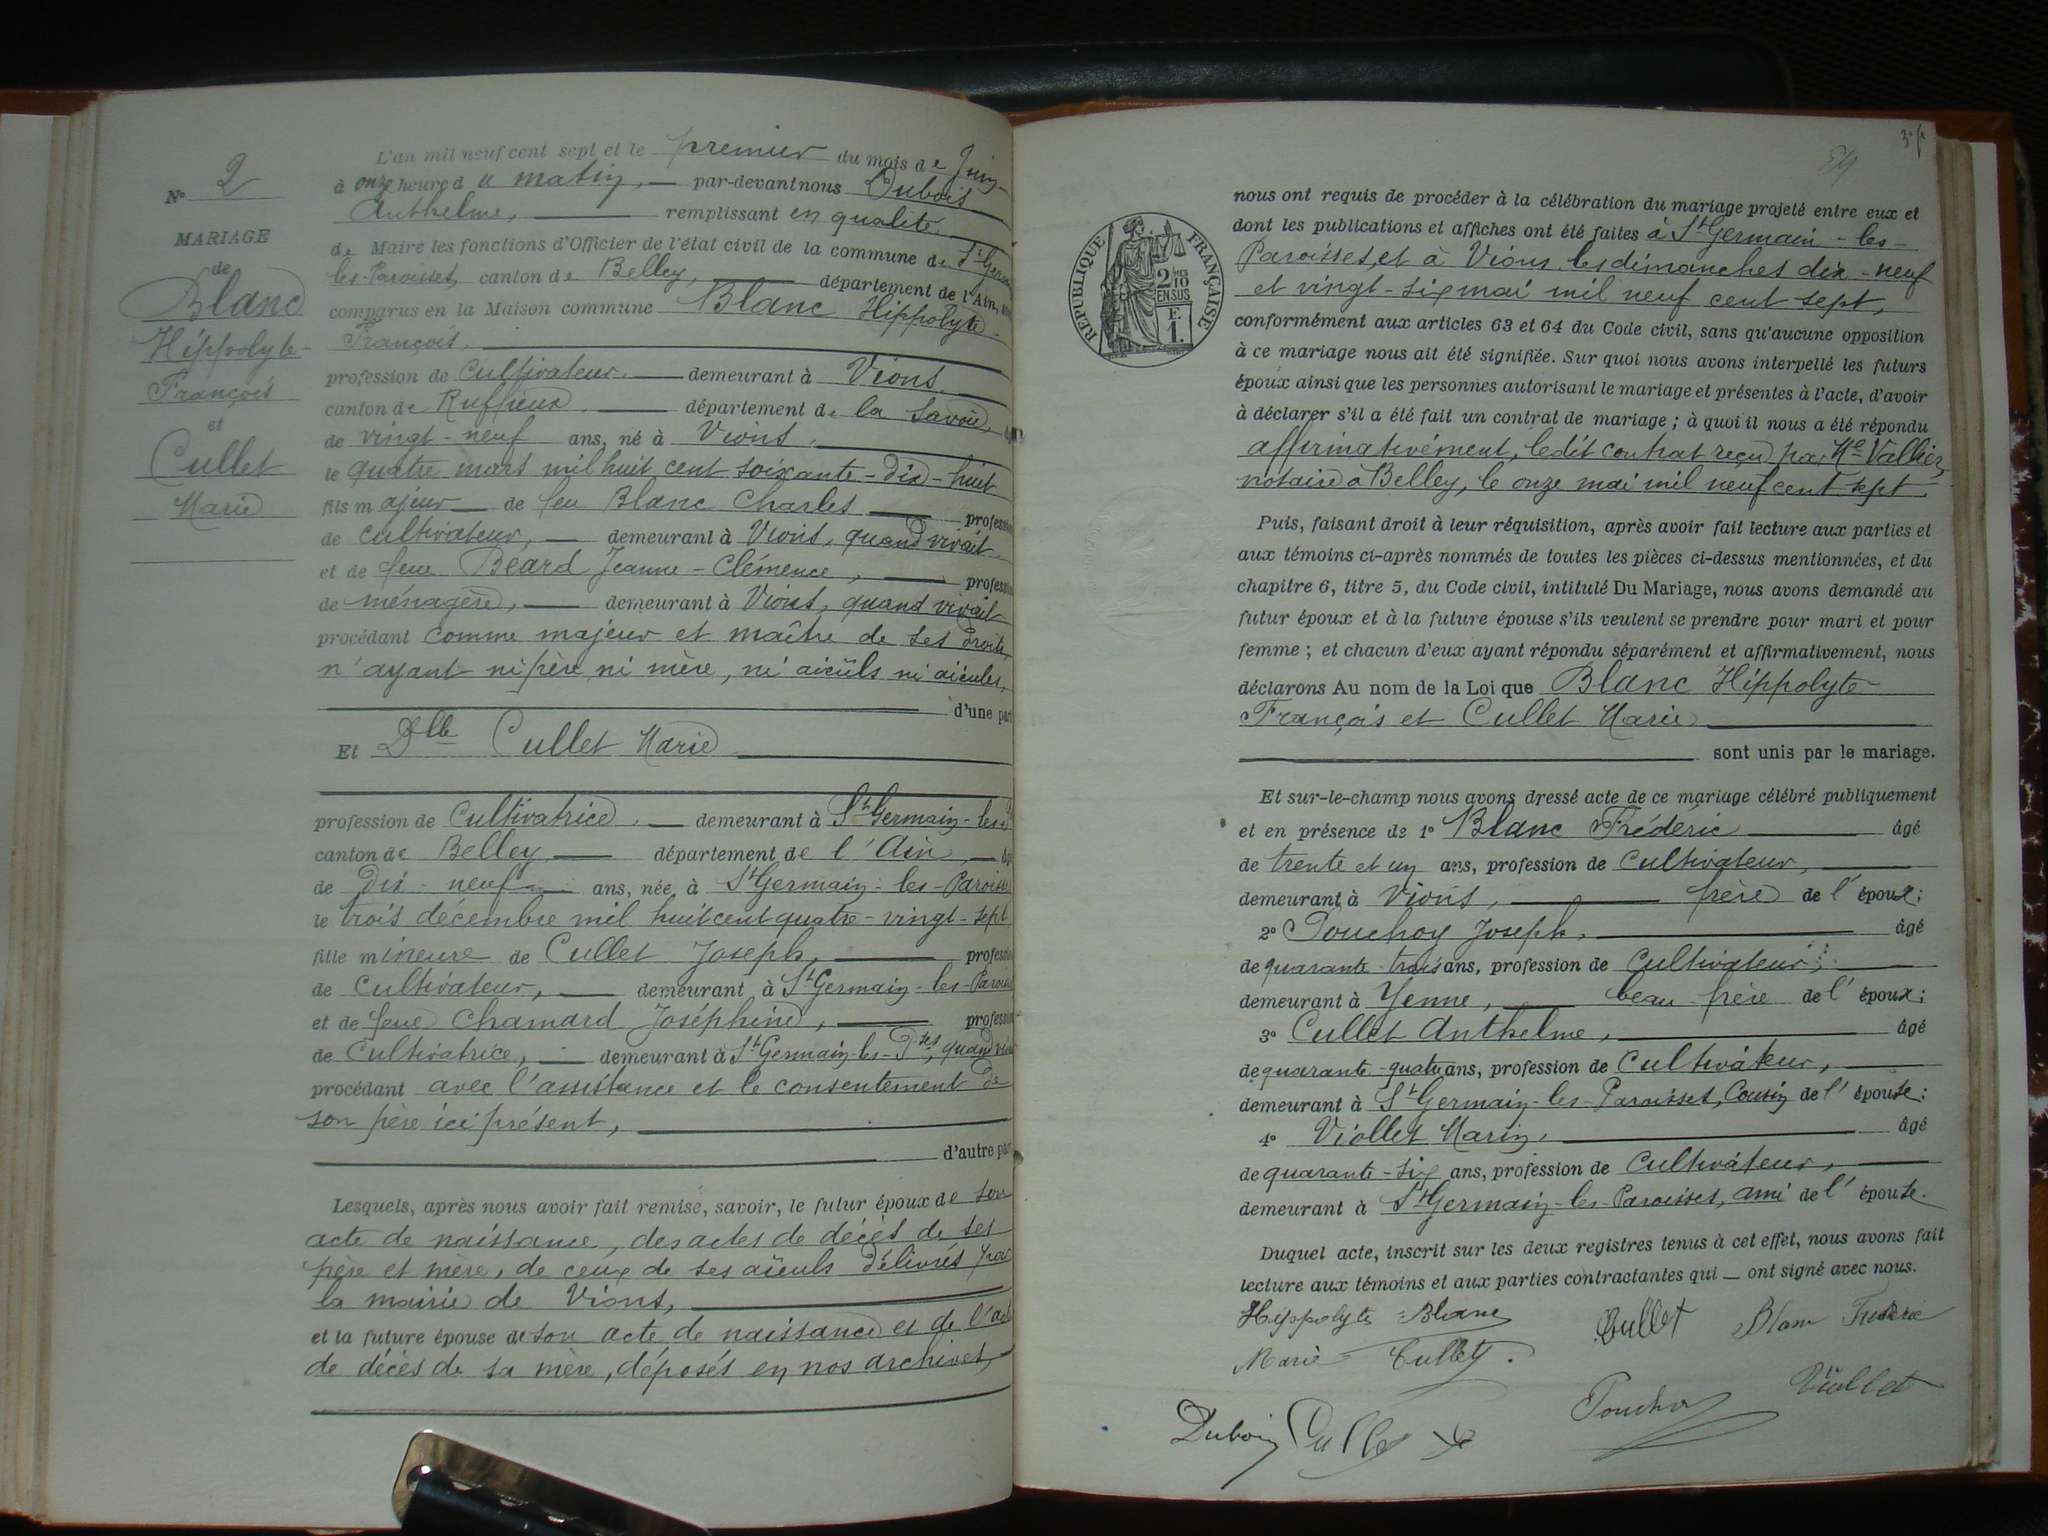 L'an mil neuf cent sept et le premier du mois de Juin
N° 2
à onze heures du matin, par-devant nous Dubois
Anthelme, remplissant en qualité
MARIAGE
de Maire les fonctions d'Officier de l'état civil de la commune de St Germain
de
les-Paroisses, canton de Belley, département de l'Ain,
Blanc
comparus en la Maison commune Blanc Hippolyte
Hippolyte-
François.
François
profession de Cultivateur. demeurant à Vions
canton de Ruffieux. département de la Savoie,
et
de vingt-neuf ans, né à Vions.
Cullet
le quatre mars mil huit cent soixante-dix-huit
Marie
fils majeur de feu Blanc Charles profession
de cultivateur, demeurant à Vions, quand vivait
et de feue Béard Jeanne-Clémence, profession
de ménagère, demeurant à Vions, quand vivait
procédant comme majeur et maître de ses droits,
n'ayant ni père ni mère, ni aïeuls ni aïeules,
d'une part
Et Dlle Cullet Marie
profession de Cultivatrice. demeurant à St Germain-les-
canton de Belley département de l'Ain,
de dix-neuf ans, née à St Germain-les-Paroisses
le trois décembre mil huit cent quatre-vingt-sept
fille mineure de Cullet Joseph, profession
de Cultivateur, demeurant à St Germain-les-Paroisses
et de feue Chamard Joséphine, profession
de Cultivatrice, demeurant à St Germain-les-Pses, quand vivait
procédant avec l'assistance et le consentement de
son père ici présent,
d'autre part
Lesquels, après nous avoir fait remise, savoir, le futur époux de son
acte de naissance, des actes de décès de ses
père et mère, de ceux de ses aïeuls délivrés par
la mairie de Vions,
et la future épouse de son acte de naissance et de l'acte
de décès de sa mère, déposés en nos archives,
nous ont requis de procéder à la célébration du mariage projeté entre eux et
dont les publications et affiches ont été faites à St Germain-les-
Paroisses, et à Vions les dimanches dix-neuf
et vingt-six mai mil neuf cent sept,
RÉPUBLIQUE FRANÇAISE
2/10
EN SUS
F.
1.
conformément aux articles 63 et 64 du Code civil, sans qu'aucune opposition
à ce mariage nous ait été signifiée. Sur quoi nous avons interpellé les futurs
époux ainsi que les personnes autorisant le mariage et présentes à l'acte, d'avoir
à déclarer s'il a été fait un contrat de mariage; à quoi il nous a été répondu
affirmativement, ledit contrat reçu par Me Vallier,
notaire à Belley, le onze mai mil neuf cent sept.
Puis, faisant droit à leur réquisition, après avoir fait lecture aux parties et
aux témoins ci-après nommés de toutes les pièces ci-dessus mentionnées, et du
chapitre 6, titre 5, du Code civil, intitulé Du Mariage, nous avons demandé au
futur époux et à la future épouse s'ils veulent se prendre pour mari et pour
femme; et chacun d'eux ayant répondu séparément et affirmativement, nous
déclarons Au nom de la Loi que Blanc Hippolyte
François et Cullet Marie
sont unis par le mariage.
Et sur-le-champ nous avons dressé acte de ce mariage célébré publiquement
et en présence de 1° Blanc Fréderic âgé
de trente et un ans, profession de Cultivateur,
demeurant à Vions, frère de l'époux;
2° Pouchoy Joseph, âgé
de quarante trois ans, profession de Cultivateur,
demeurant à Yenne, beau frère de l'époux;
3° Cullet Anthelme, âgé
de quarante-quatre ans, profession de Cultivateur,
demeurant à St Germain-les-Paroisses, Cousin de l'épouse;
4° Viollet Marin, âgé
de quarante-six ans, profession de Cultivateur,
demeurant à St Germain-les-Paroisses, ami de l'épouse.
Duquel acte, inscrit sur les deux registres tenus à cet effet, nous avons fait
lecture aux témoins et aux parties contractantes qui ont signé avec nous.
Hippolyte Blanc Cullet Blanc Fréderic
Marie Cullet. Viollet
Dubois Cullet Pouchoy